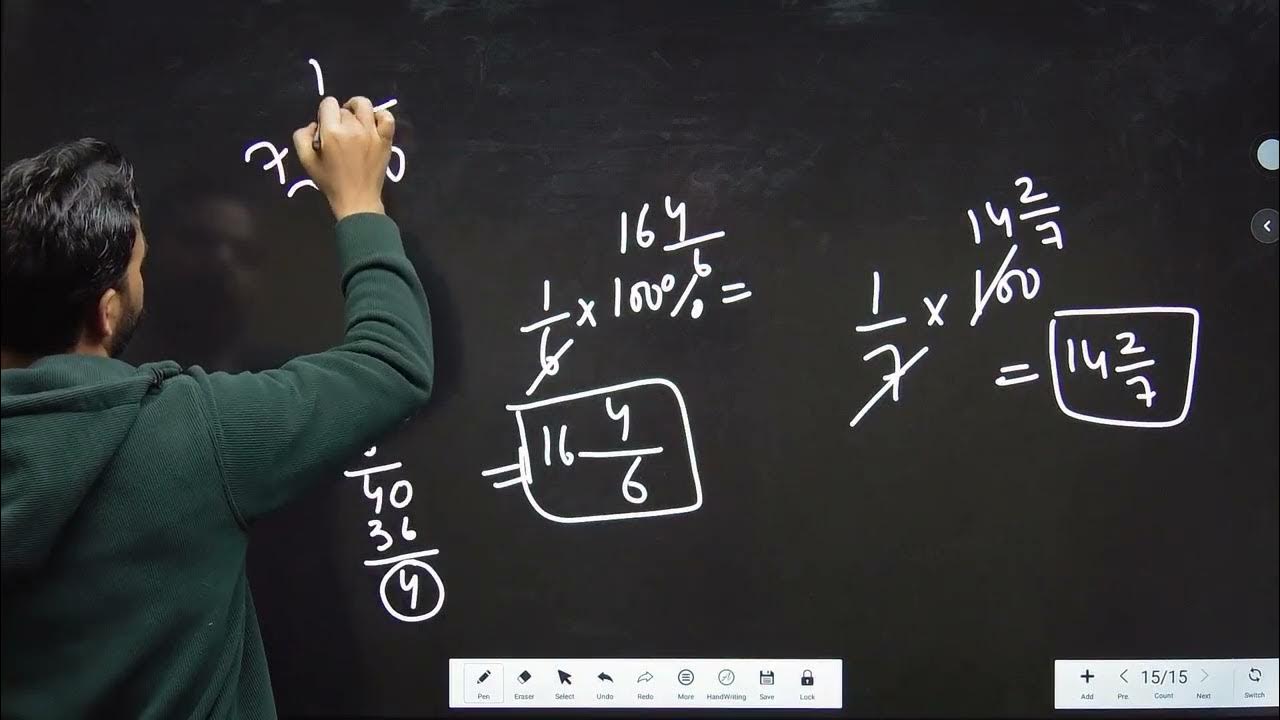 1
7
0
16 4/6
1/6 × 100% =
= 16 4/6
40
36
4
14 2/7
1/7 × 100
= 14 2/7
Pen Eraser Select Undo Redo More HandWriting Save Lock
Add Pre. 15/15 Count Next Switch